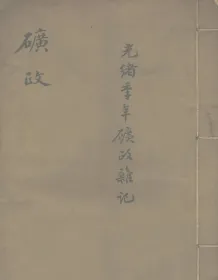 礦政
光緒季年礦政雜記